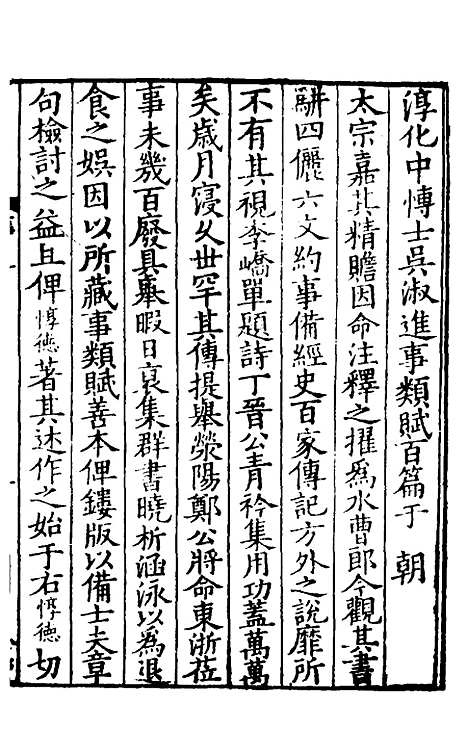 淳化中愽士吳淑進事類賦百篇于　朝
太宗嘉其精贍因命注釋之擢爲水曹郎今觀其書
駢四儷六文約事備經史百家傳記方外之說靡所
不有其視李嶠單題詩丁晉公青衿集用功蓋萬萬
矣歲月寖久世罕其傳提舉滎陽鄭公將命東浙莅
事未幾百廢具舉暇日裒集群書曉析涵泳以為退
食之娛因以所藏事類賦善本俾鏤版以備士夫章
句檢討之益且俾惇德著其述作之始于右惇德切